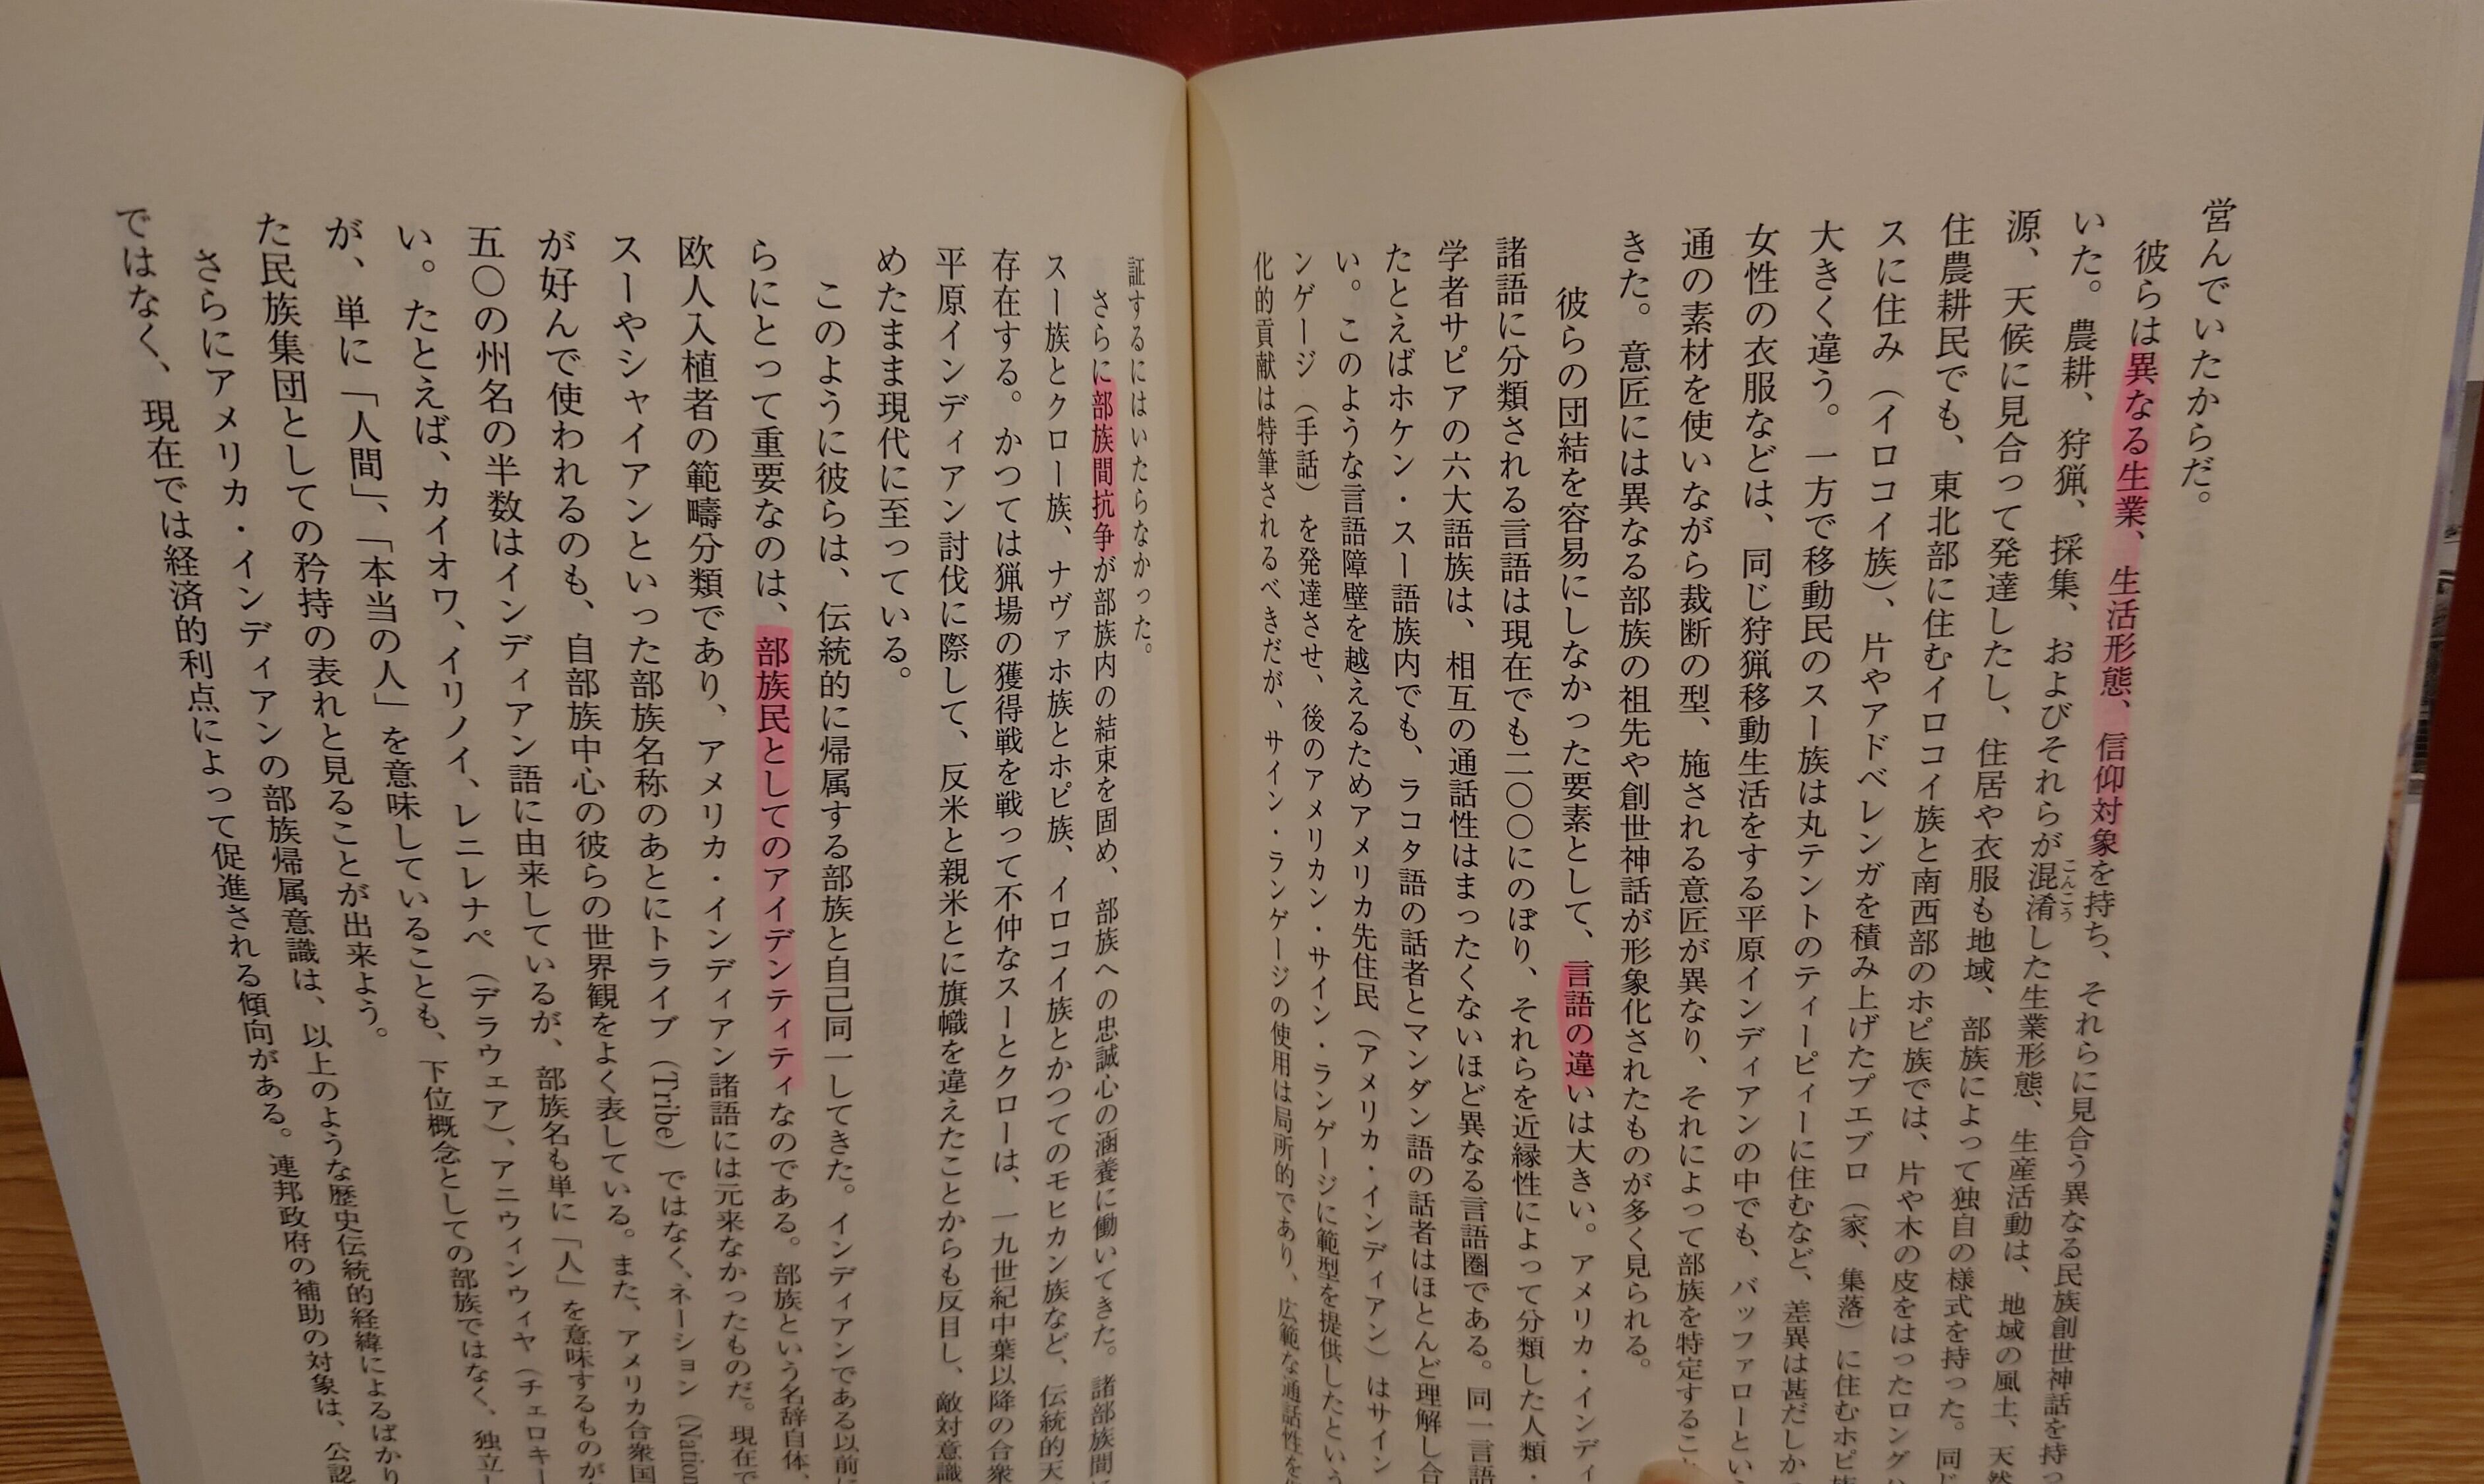 営んでいたからだ。
彼らは異なる生業、生活形態、信仰対象を持ち、それらに見合う異なる民族創世神話を持っ
いた。農耕、狩猟、採集、およびそれらが混淆した生業形態、生産活動は、地域の風土、天然
こんこう
源、天候に見合って発達したし、住居や衣服も地域、部族によって独自の様式を持った。同じ
住農耕民でも、東北部に住むイロコイ族と南西部のホピ族では、片や木の皮をはったロングハ
スに住み（イロコイ族）、片やアドベレンガを積み上げたプエブロ（家、集落）に住むホピ族
大きく違う。一方で移動民のスー族は丸テントのティーピィーに住むなど、差異は甚だしかっ
女性の衣服などは、同じ狩猟移動生活をする平原インディアンの中でも、バッファローという
通の素材を使いながら裁断の型、施される意匠が異なり、それによって部族を特定すること
きた。意匠には異なる部族の祖先や創世神話が形象化されたものが多く見られる。
彼らの団結を容易にしなかった要素として、言語の違いは大きい。アメリカ・インディ
諸語に分類される言語は現在でも二〇〇にのぼり、それらを近縁性によって分類した人類・
学者サピアの六大語族は、相互の通話性はまったくないほど異なる言語圏である。同一言語
たとえばホケン・スー語族内でも、ラコタ語の話者とマンダン語の話者はほとんど理解し合
い。このような言語障壁を越えるためアメリカ先住民（アメリカ・インディアン）はサイン
ンゲージ（手話）を発達させ、後のアメリカン・サイン・ランゲージに範型を提供したという
化的貢献は特筆されるべきだが、サイン・ランゲージの使用は局所的であり、広範な通話性を
証するにはいたらなかった。
さらに部族間抗争が部族内の結束を固め、部族への忠誠心の涵養に働いてきた。諸部族間
スー族とクロー族、ナヴァホ族とホピ族、イロコイ族とかつてのモヒカン族など、伝統的天
存在する。かつては猟場の獲得戦を戦って不仲なスーとクローは、一九世紀中葉以降の合衆
平原インディアン討伐に際して、反米と親米とに旗幟を違えたことからも反目し、敵対意識
めたまま現代に至っている。
このように彼らは、伝統的に帰属する部族と自己同一してきた。インディアンである以前に
らにとって重要なのは、部族民としてのアイデンティティなのである。部族という名辞自体、
欧人入植者の範疇分類であり、アメリカ・インディアン諸語には元来なかったものだ。現在で
スーやシャイアンといった部族名称のあとにトライブ（Tribe）ではなく、ネーション（Nation
が好んで使われるのも、自部族中心の彼らの世界観をよく表している。また、アメリカ合衆国
五〇の州名の半数はインディアン語に由来しているが、部族名も単に「人」を意味するものが
い。たとえば、カイオワ、イリノイ、レニレナペ（デラウェア）、アニウィンウィヤ（チェロキー
が、単に「人間」、「本当の人」を意味していることも、下位概念としての部族ではなく、独立し
た民族集団としての矜持の表れと見ることが出来よう。
さらにアメリカ・インディアンの部族帰属意識は、以上のような歴史伝統的経緯によるばかり
ではなく、現在では経済的利点によって促進される傾向がある。連邦政府の補助の対象は、公認